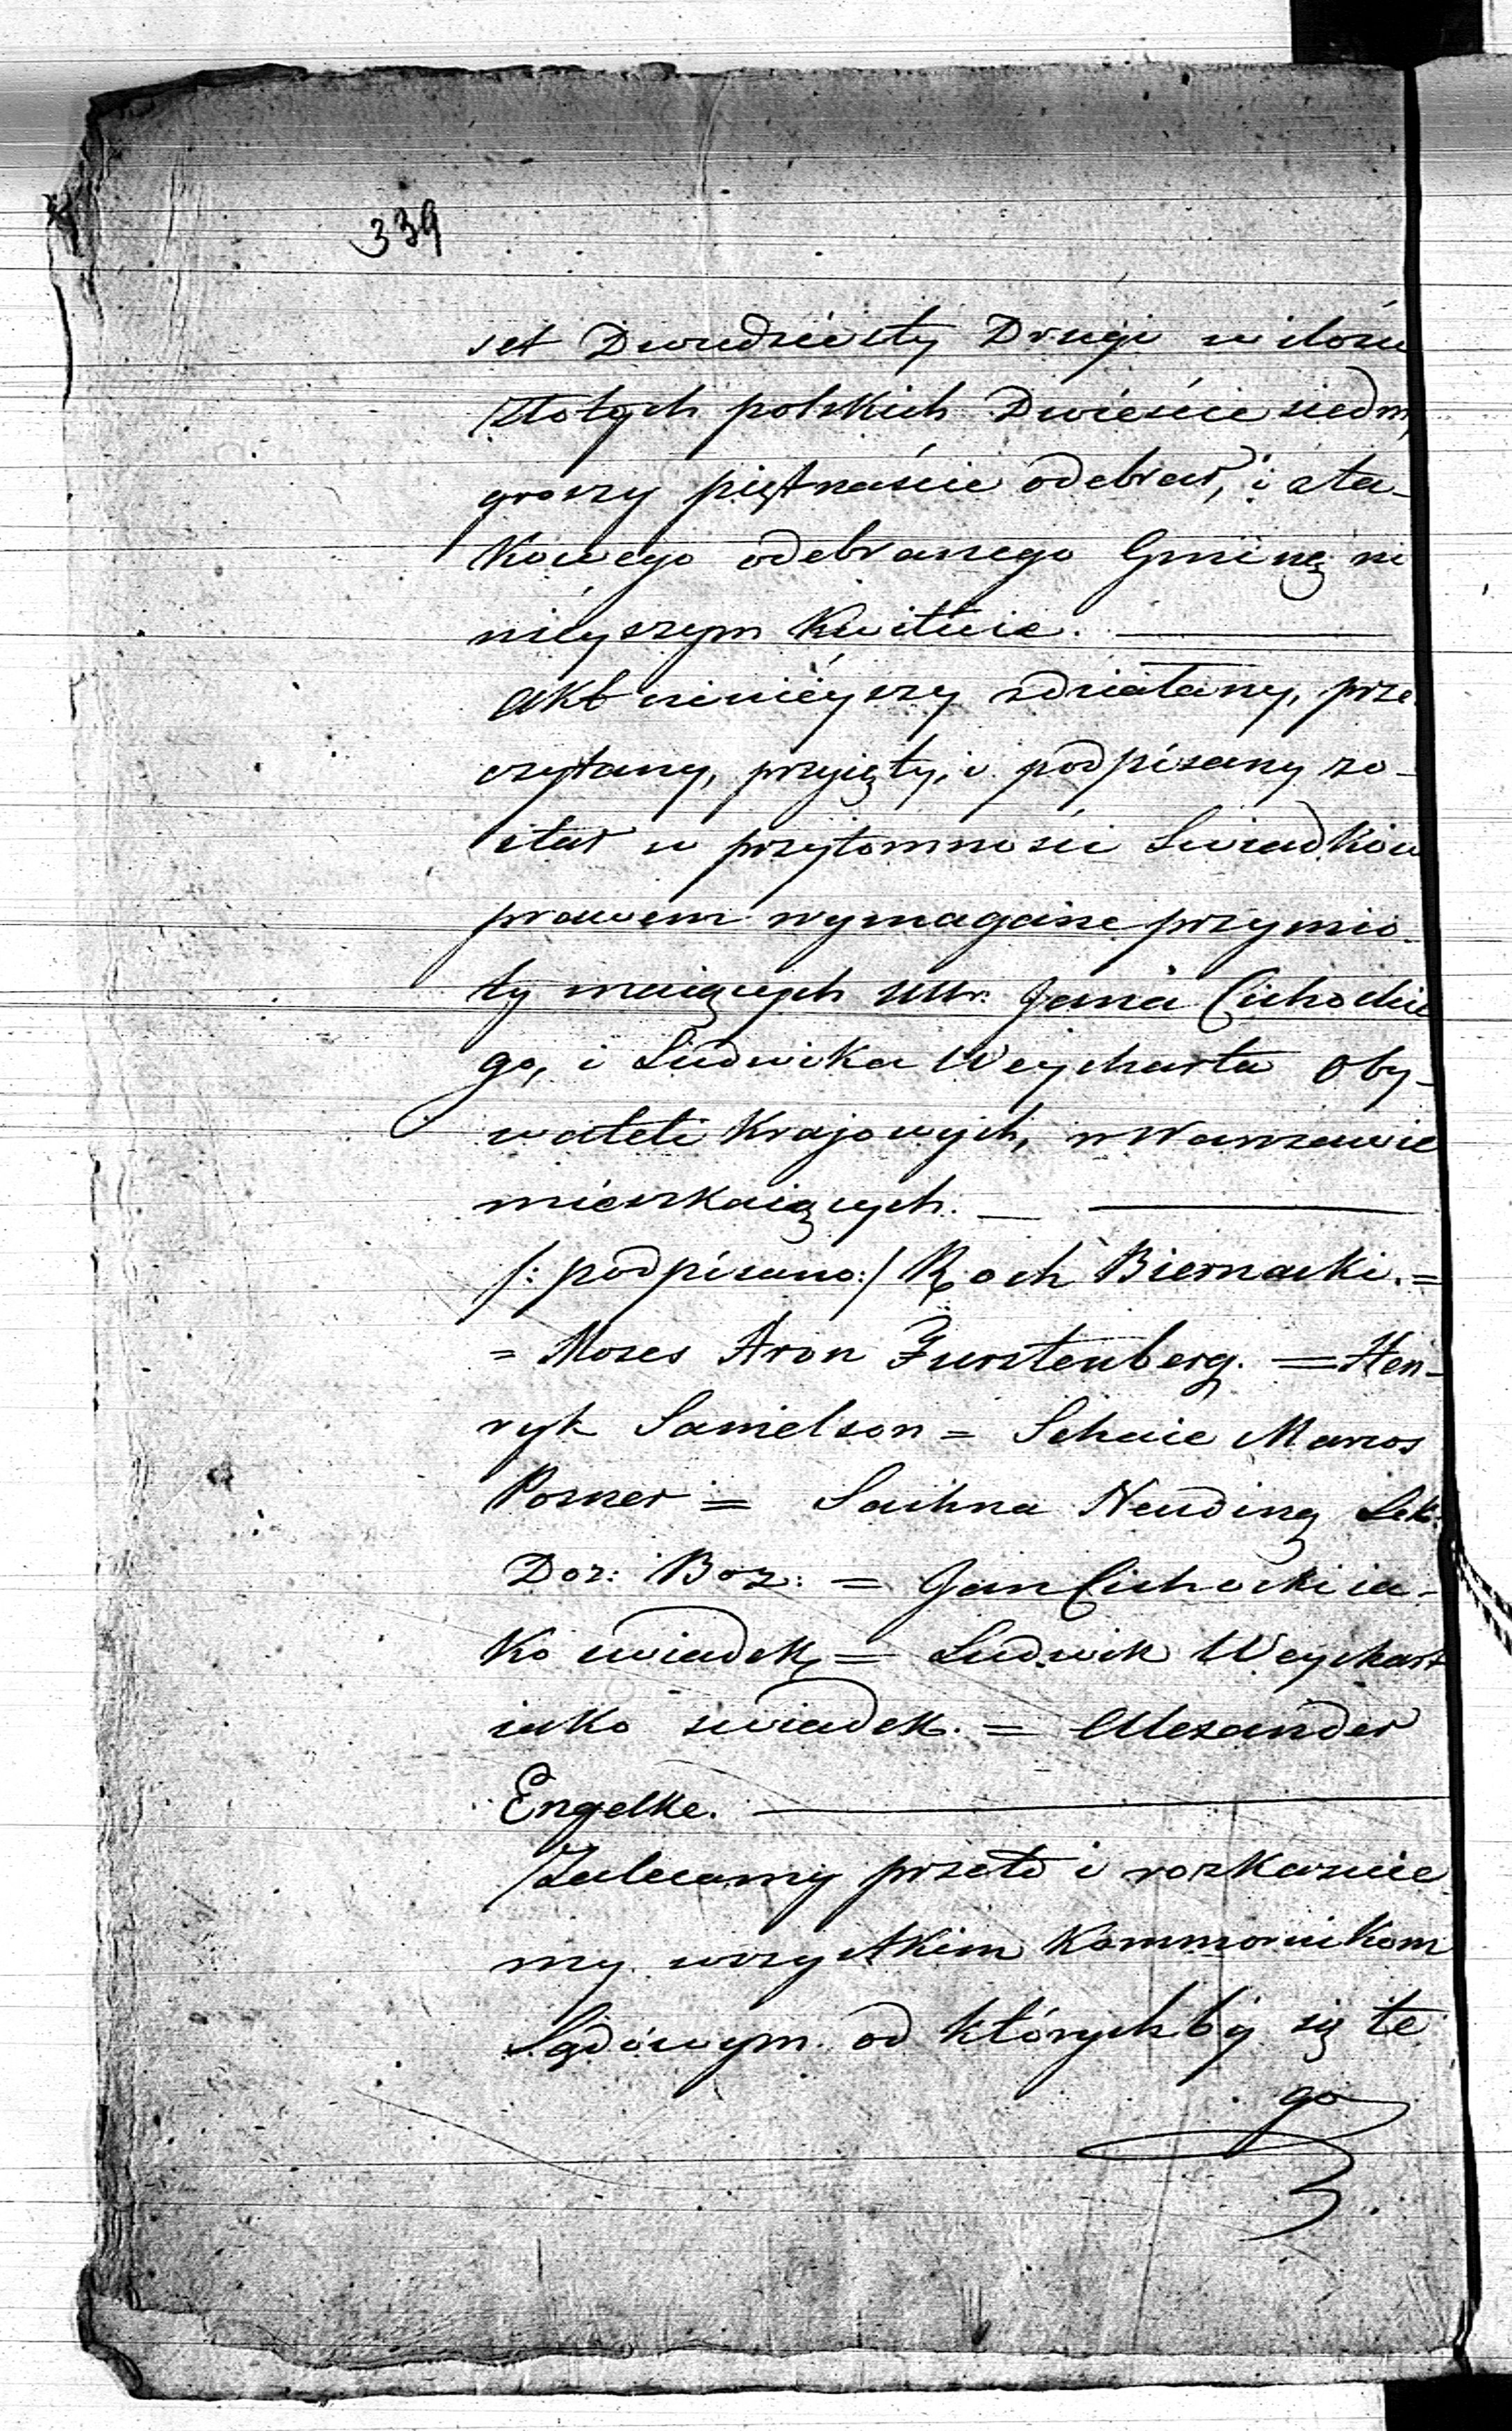 339
set Dwudziesty Drugi w ilości
złotych polskich Dwieście siedm,
groszy piętnaście odebrał, i z ta-
kowego odebranego Gminę ni
nieyszym kwituie.
Akt ninieyszy zdziałany, prze
czytany, przyięty, i podpisany zo-
stał w przytomności Swiadków
prawem wymagane przymio-
ty maiących Ur. Jana Cichockie
go, i Ludwika Weycharta Oby-
wateli Krajowych, w Warszawie
mieszkaiących.
/: podpisano:/ Roch Biernacki. =
= Moses Aron Furstenberg. = Hen-
ryk Samelson = Schaie Marcos
Posner = Sachna Neuding Sek:
Doz: Boz: = Jan Cichocki ia-
ko swiadek = Ludwik Weychart
iako swiadek. = Alexander
Engelke.
Zalecamy przeto i rozkazuie
my wszystkim Kommornikom
Sądowym od którychby się te
go